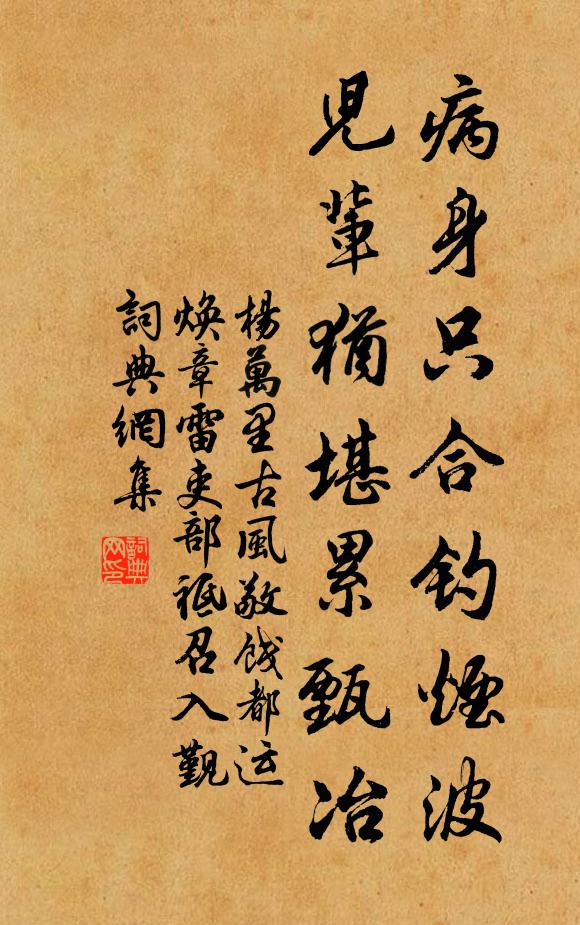 病身只合釣煙波
兒輩猶堪累甄冶
楊萬里古風敬餞都运
煥章雷吏部祗召入覲
詞典網集
詞典
网印